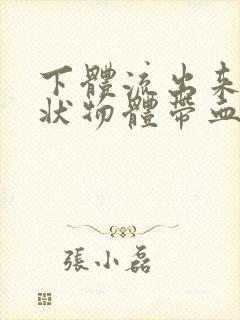 下體流出來
狀物體帶血
張小磊